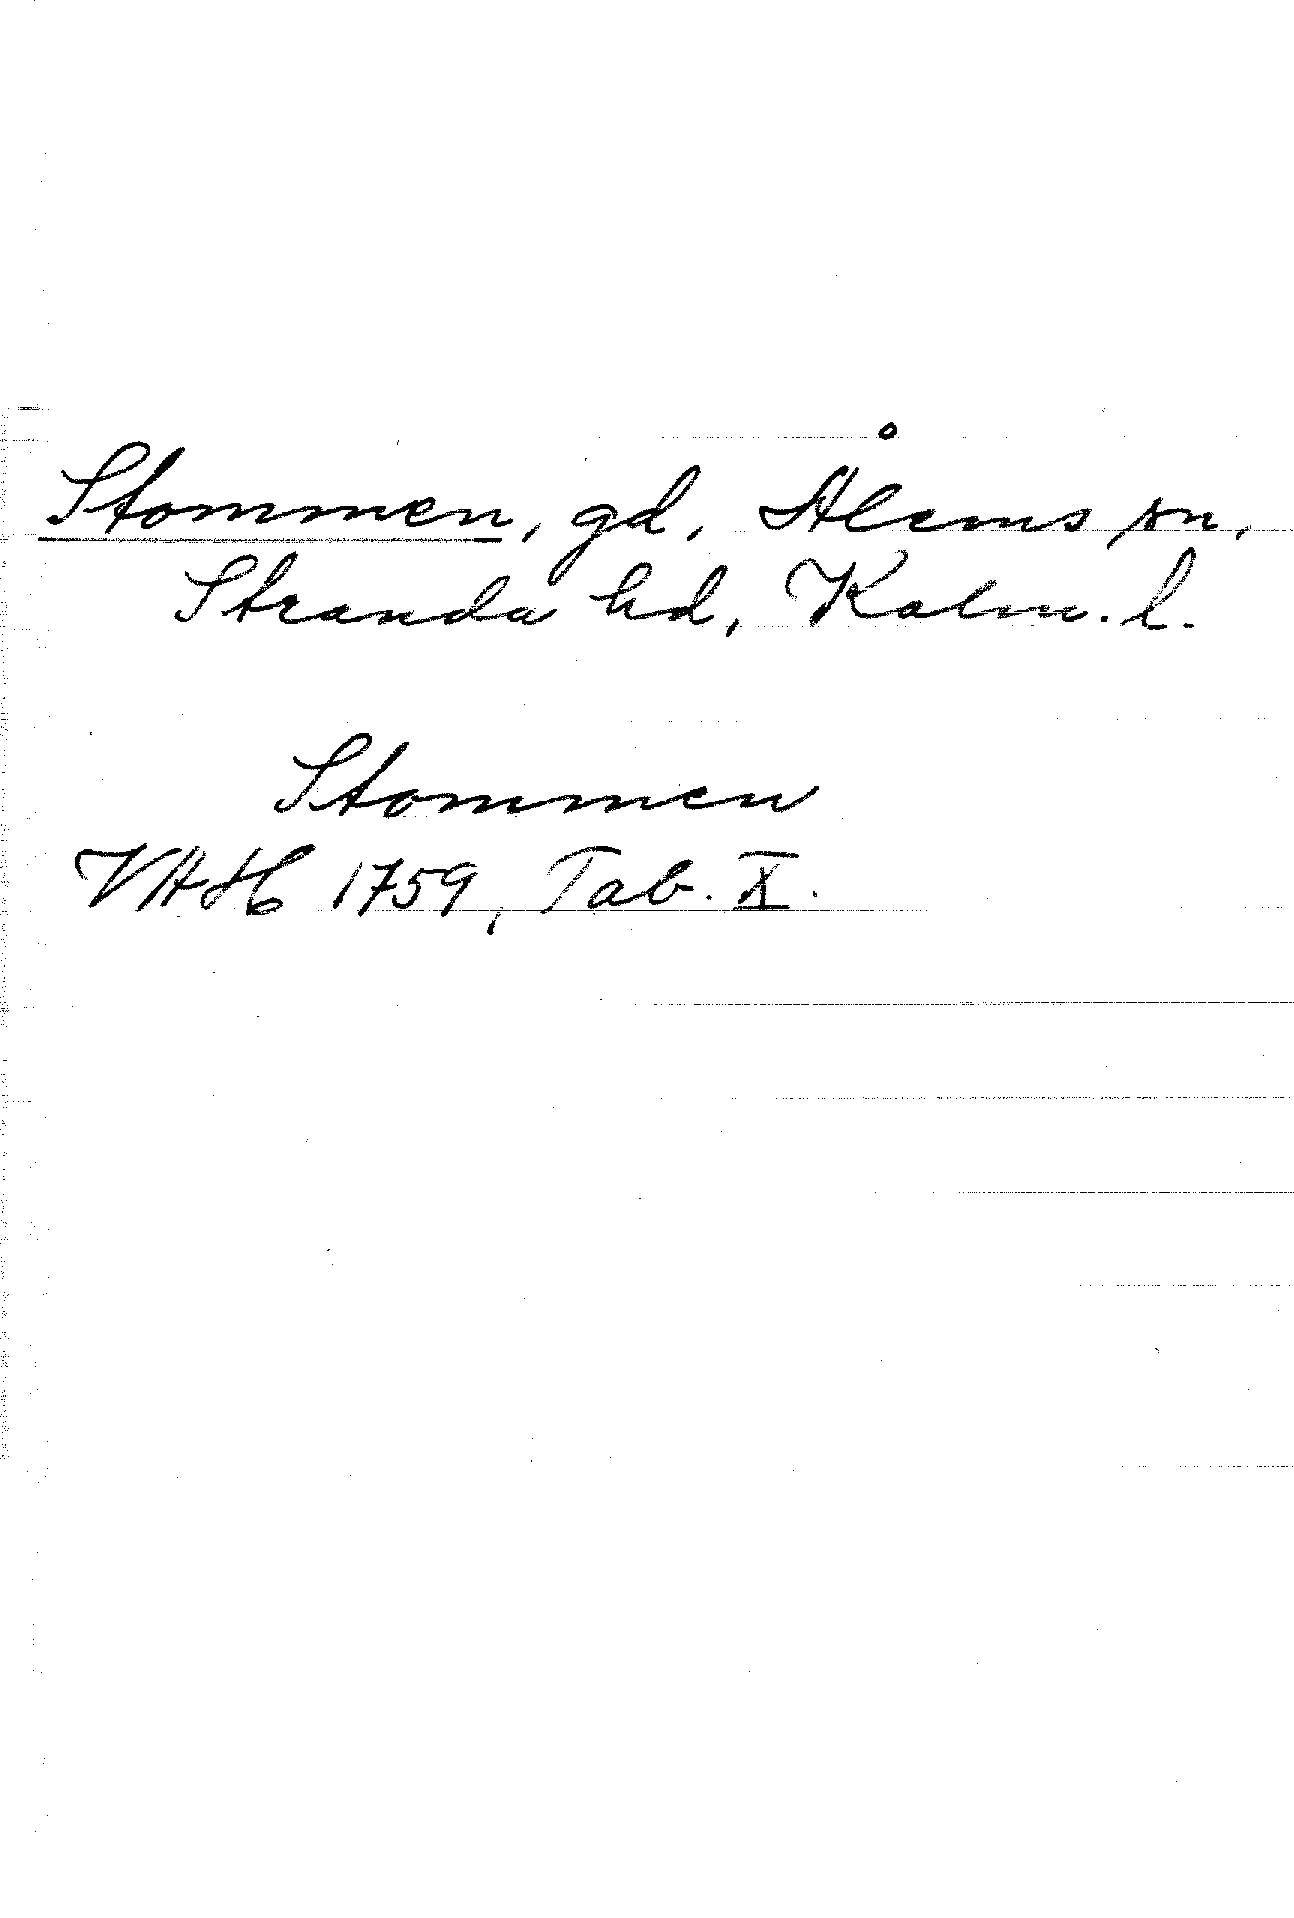 Stommen, gd, Ålems sn,
Stranda hd, Kalm. l.
Stommen
VHAH 1759, Tab. X.